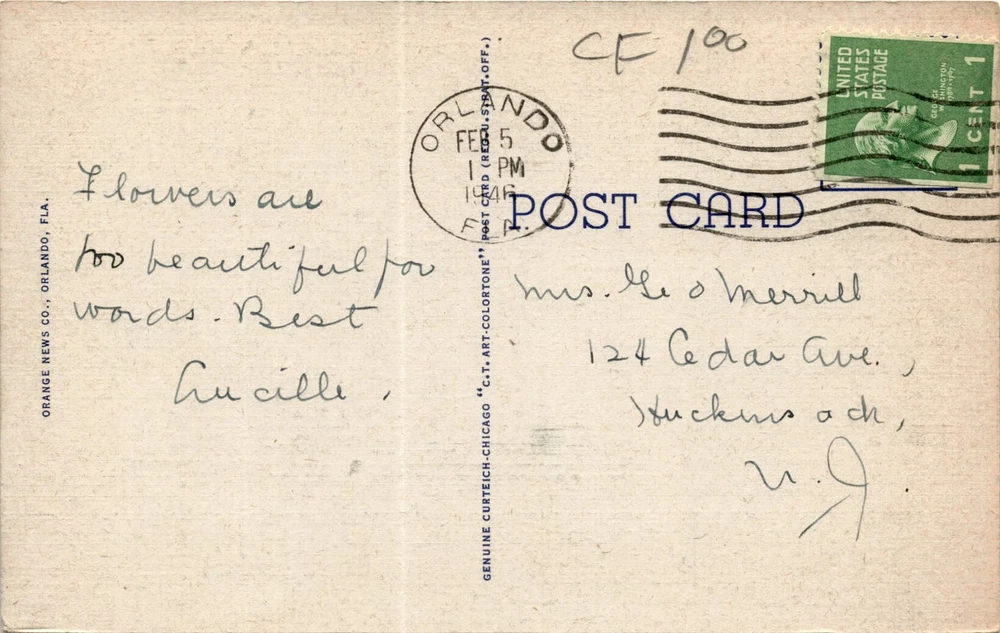 CF 1 00
UNITED
STATES
POSTAGE
GEORGE
WASHINGTON
1789-1797
1 CENT 1
ORLANDO
FEB 5
1 PM
1946
FLA.
POST CARD
Flowers are
too beautiful for
words. Best
Lucille.
Mrs. Geo Merrill
124 Cedar Ave.,
Hackensack,
N.J.
ORANGE NEWS CO., ORLANDO, FLA.
GENUINE CURTEICH-CHICAGO "C.T. ART-COLORTONE" POST CARD (REG. U.S. PAT. OFF.)